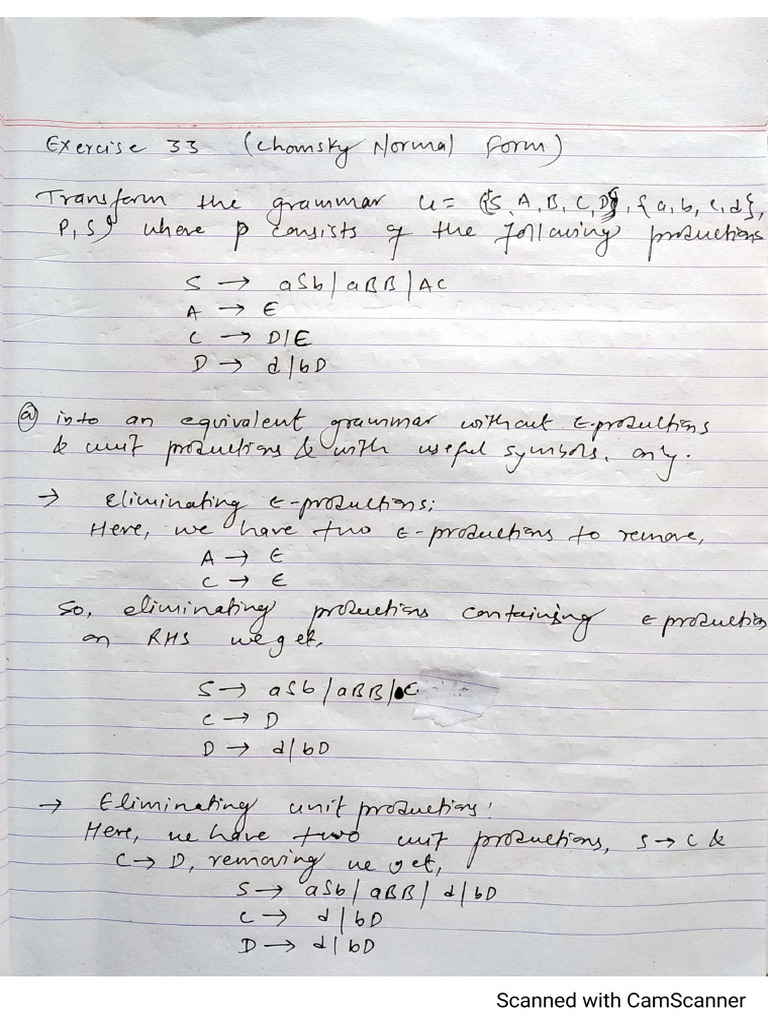 Exercise 33 (Chomsky Normal Form)
Transform the grammar G = ({S, A, B, C, D}, {a, b, c, d},
P, S) where P consists of the following productions
S → aSb | aBB | AC
A → ε
C → D | ε
D → d | bD
(a) into an equivalent grammar without ε-productions
& unit productions & with useful symbols, only.
→ Eliminating ε-productions;
Here, we have two ε-productions to remove,
A → ε
C → ε
So, eliminating productions containing ε production
on RHS we get,
S → aSb | aBB | C
C → D
D → d | bD
→ Eliminating unit productions:
Here, we have two unit productions, S → C &
C → D, removing we get,
S → aSb | aBB | d | bD
C → d | bD
D → d | bD
Scanned with CamScanner